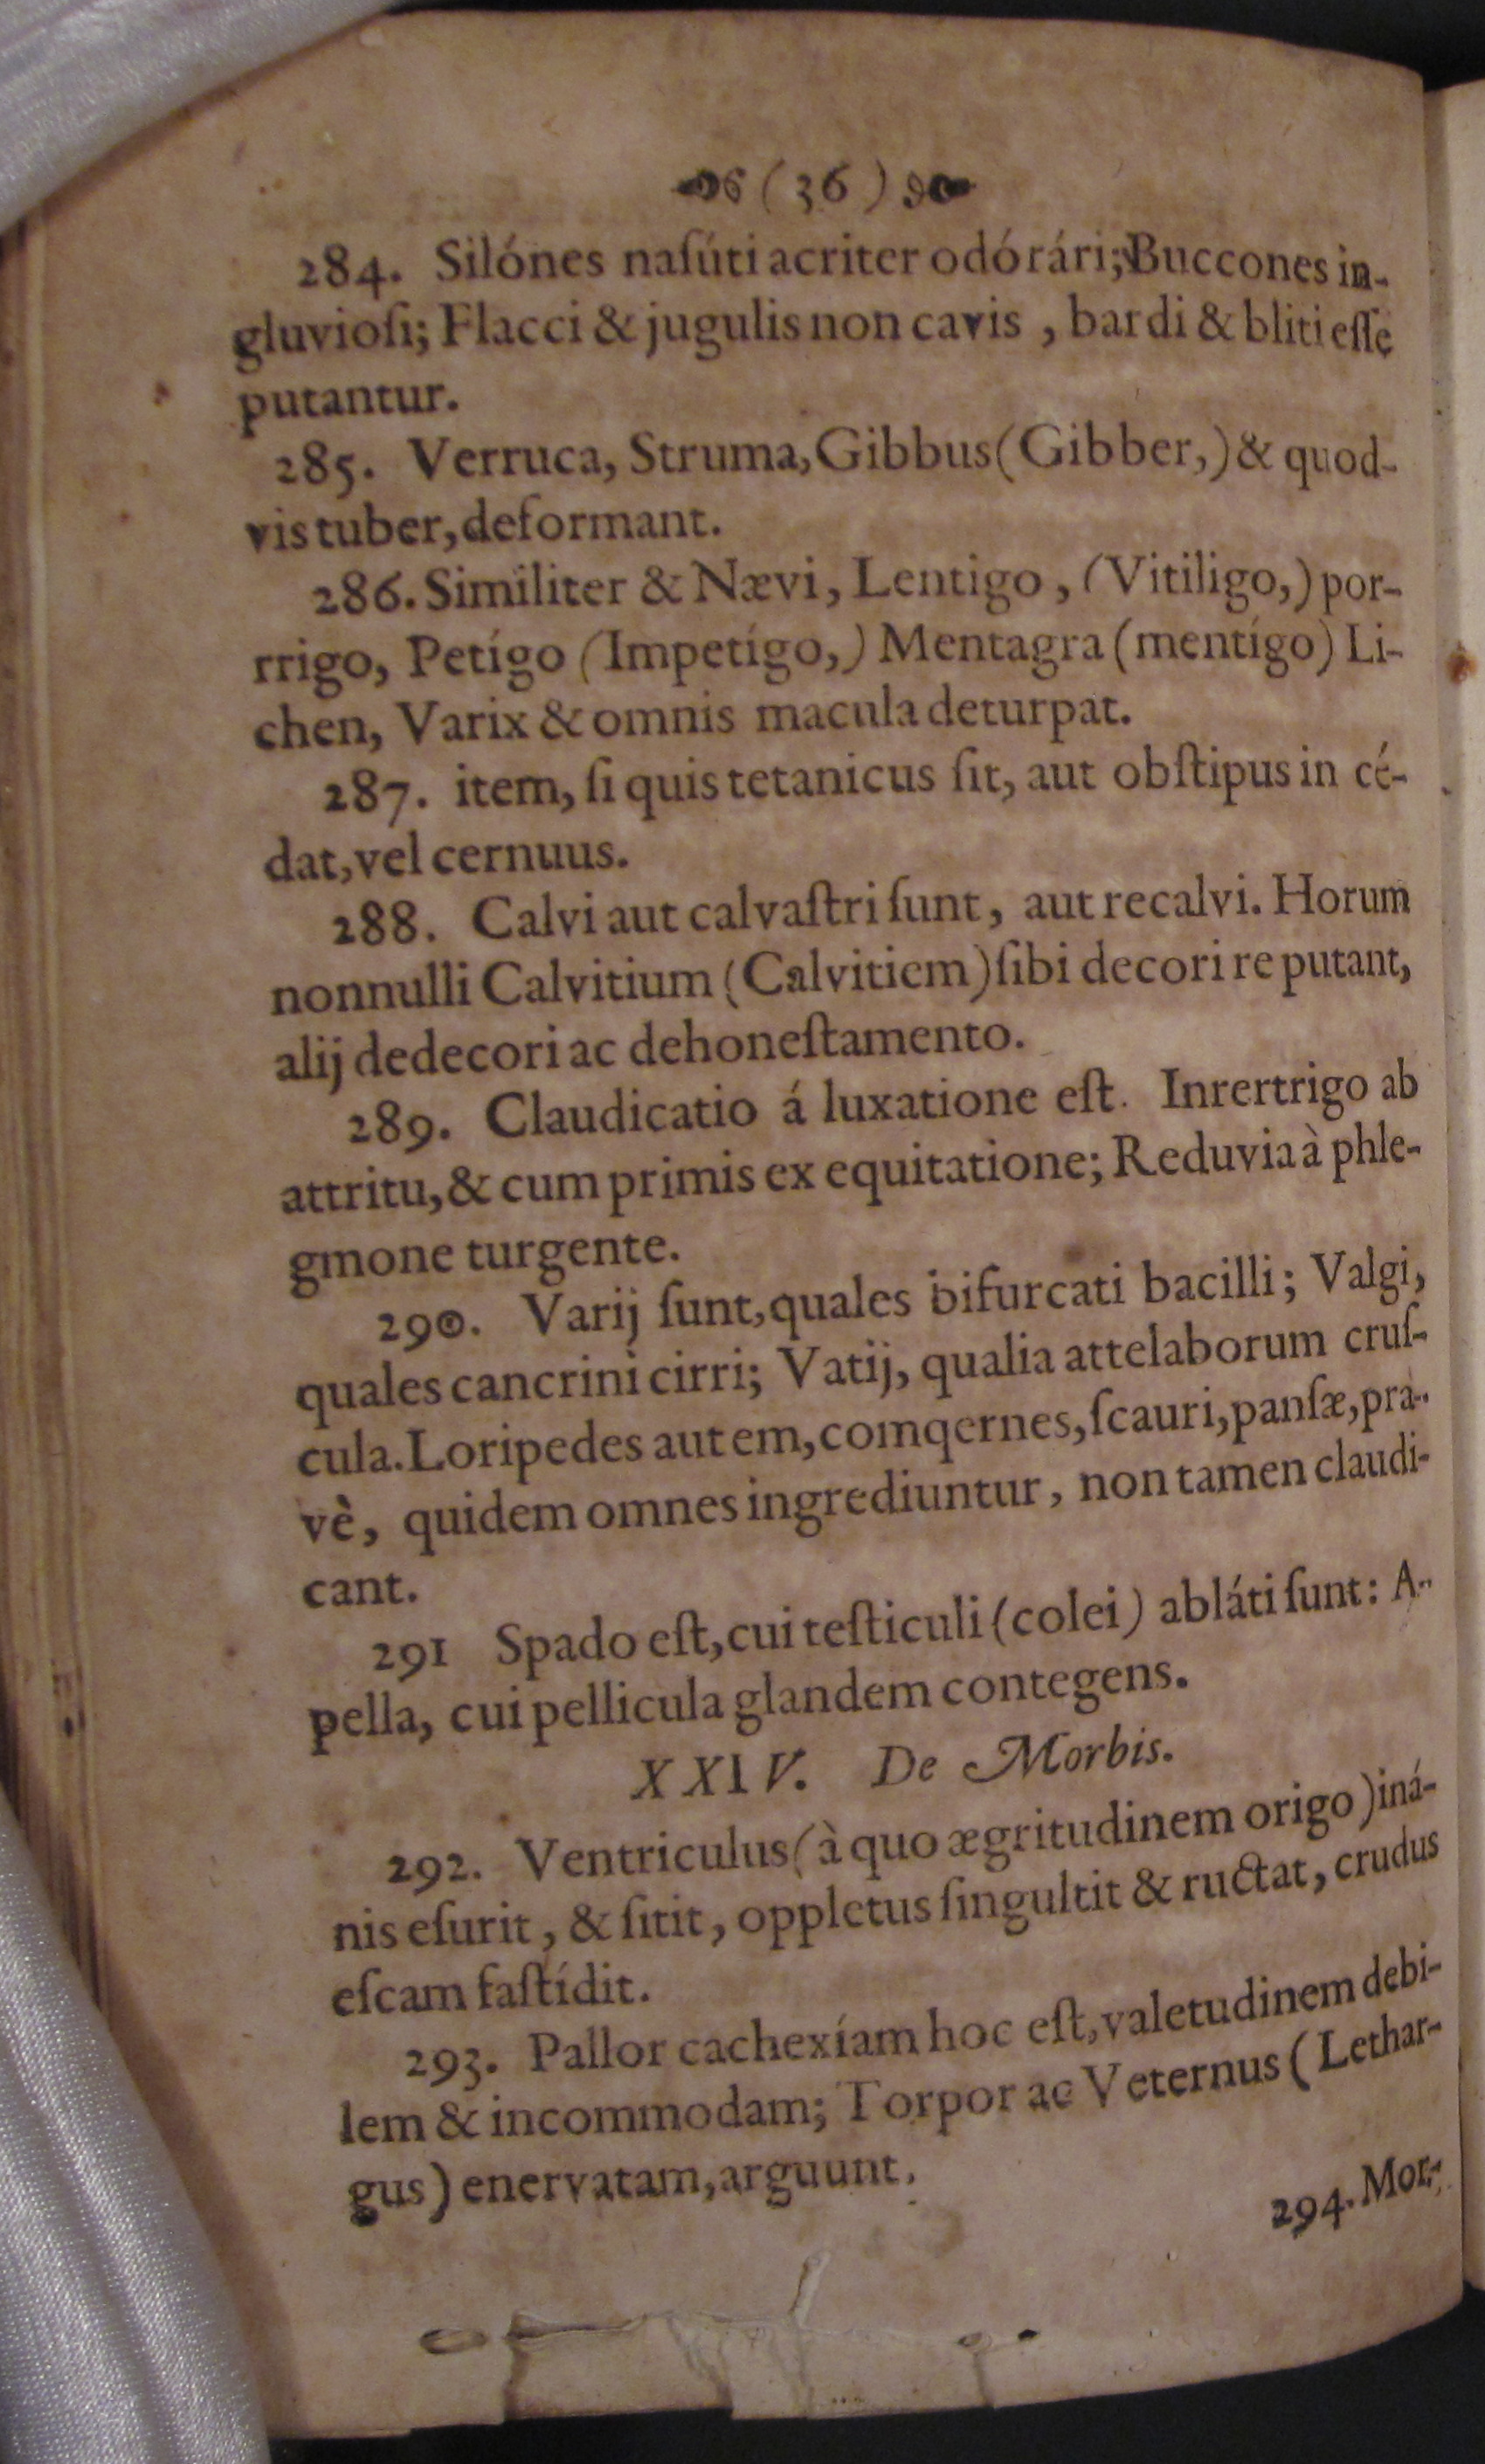 (36)
284. Silónes naſúti acriter odórári; Buccones in-
gluvioſi; Flacci & jugulis non cavis, bardi & bliti eſſe
putantur.
285. Verruca, Struma, Gibbus (Gibber,) & quod-
vis tuber, deformant.
286. Similiter & Nævi, Lentigo, (Vitiligo,) por-
rrigo, Petígo (Impetígo,) Mentagra (mentígo) Li-
chen, Varix & omnis macula deturpat.
287. item, ſi quis tetanicus ſit, aut obſtipus in cé-
dat, vel cernuus.
288. Calvi aut calvaſtri ſunt, aut recalvi. Horum
nonnulli Calvitium (Calvitiem) ſibi decori reputant,
alij dedecori ac dehoneſtamento.
289. Claudicatio á luxatione eſt. Inrertrigo ab
attritu, & cum primis ex equitatione; Reduvia à phle-
gmone turgente.
290. Varij ſunt, quales bifurcati bacilli; Valgi,
quales cancrini cirri; Vatij, qualia attelaborum cruſ-
cula. Loripedes autem, comqernes, ſcauri, panſæ, pra-
vè, quidem omnes ingrediuntur, non tamen claudi-
cant.
291 Spado eſt, cui teſticuli (colei) abláti ſunt: A-
pella, cui pellicula glandem contegens.
XXIV. De Morbis.
292. Ventriculus (à quo ægritudinem origo) iná-
nis eſurit, & ſitit, oppletus ſingultit & ructat, crudus
eſcam faſtídit.
293. Pallor cachexíam hoc eſt, valetudinem debi-
lem & incommodam; Torpor ac Veternus (Lethar-
gus) enervatam, arguunt.
294. Mor-